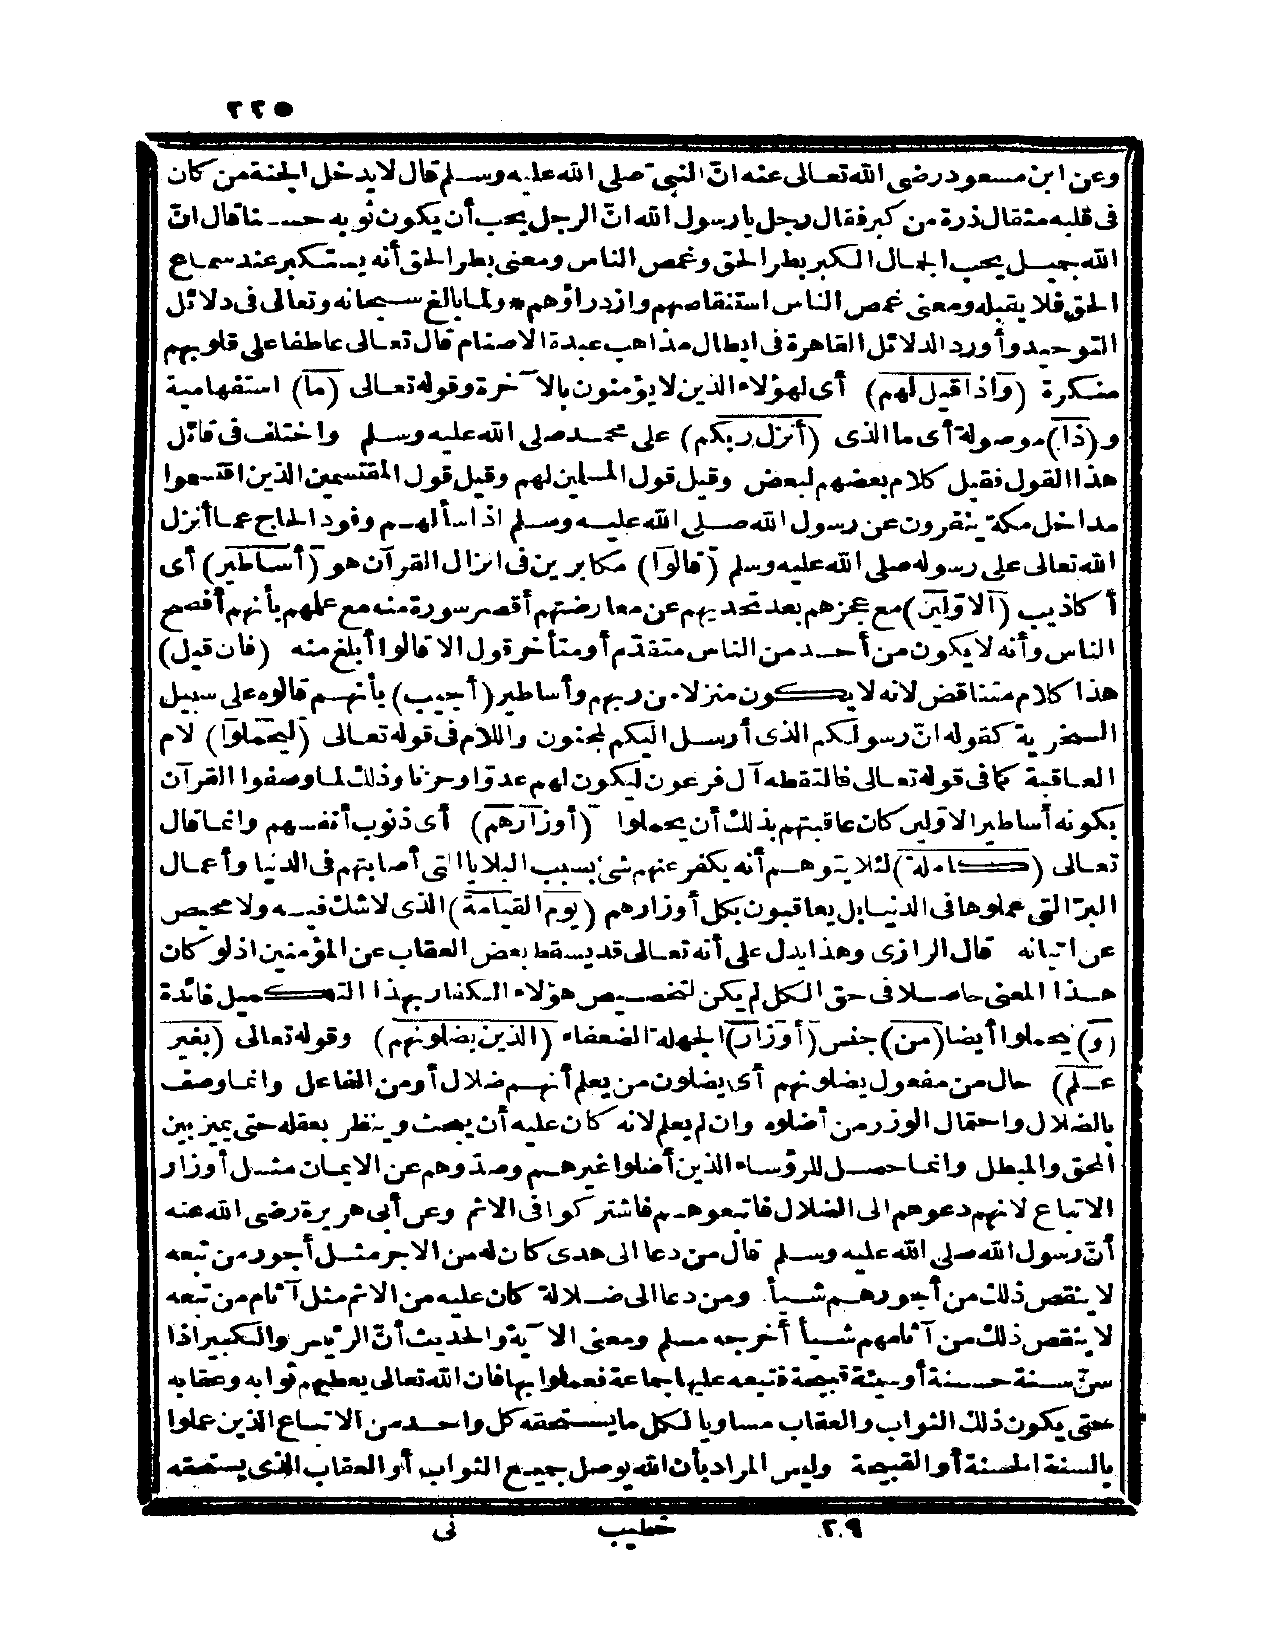 ٢٢٥
وعن ابن مسعود رضى الله تعالى عنه انّ النبىّ صلى الله عليه وسلم قال لا يدخل الجنة من كان
فى قلبه مثقال ذرة من كبر فقال رجل يا رسول الله انّ الرجل يحب أن يكون ثوبه حسنا قال انّ
الله جميل يحب الجمال الكبر بطر الحق وغمص الناس ومعنى بطر الحق أنه يستكبر عند سماع
الحق فلا يقبله ومعنى غمص الناس استنقاصهم وازدراؤهم * ولما بالغ سبحانه وتعالى فى دلائل
التوحيد وأورد الدلائل القاهرة فى ابطال مذاهب عبدة الاصنام قال تعالى عاطفا على قلوبهم
منكرة (واذا قيل لهم) أى لهؤلاء الذين لا يؤمنون بالآخرة وقوله تعالى (ما) استفهامية
و(ذا) موصولة أى ما الذى (أنزل ربكم) على محمد صلى الله عليه وسلم واختلف فى قائل
هذا القول فقيل كلام بعضهم لبعض وقيل قول المسلمين لهم وقيل قول المقتسمين الذين اقتسموا
مداخل مكة ينفرون عن رسول الله صلى الله عليه وسلم اذا سألهم وفود الحاج عما أنزل
الله تعالى على رسوله صلى الله عليه وسلم (قالوا) مكابرين فى انزال القرآن هو (أساطير) أى
أكاذيب (الاوّلين) مع عجزهم بعد تحديهم عن معارضتهم أقصر سورة منه مع علمهم بأنهم أفصح
الناس وأنه لا يكون من أحد من الناس متقدم أو متأخر قول الا قالوا أبلغ منه (فان قيل)
هذا كلام متناقض لانه لا يكون منزلا من ربهم وأساطير (أجيب) بأنهم قالوه على سبيل
السخرية كقوله انّ رسولكم الذى أرسل اليكم لمجنون واللام فى قوله تعالى (ليحملوا) لام
العاقبة كما فى قوله تعالى فالتقطه آل فرعون ليكون لهم عدوّا وحزنا وذلك لما وصفوا القرآن
بكونه أساطير الاوّلين كان عاقبتهم بذلك أن يحملوا (أوزارهم) أى ذنوب أنفسهم وانما قال
تعالى (كاملة) لئلا يتوهم أنه يكفر عنهم شئ بسبب البلايا التى أصابتهم فى الدنيا وأعمال
البرّ التى عملوها فى الدنيا بل يعاقبون بكل أوزارهم (يوم القيامة) الذى لا شك فيه ولا محيص
عن اتيانه قال الرازى وهذا يدل على أنه تعالى قد يسقط بعض العقاب عن المؤمنين اذ لو كان
هذا المعنى حاصلا فى حق الكل لم يكن لتخصيص هؤلاء الكفار بهذا التكميل فائدة
(و) يحملوا أيضا (من) جنس (أوزار) الجهلة الضعفاء (الذين يضلونهم) وقوله تعالى (بغير
علم) حال من مفعول يضلونهم أى يضلون من يعلم أنهم ضلال أو من الفاعل وانما وصف
بالضلال واحتمال الوزر من أضلوه وان لم يعلم لانه كان عليه أن يبحث وينظر بعقله حتى يميز بين
المحق والمبطل وانما حصل للرؤساء الذين أضلوا غيرهم وصدّوهم عن الايمان مثل أوزار
الاتباع لانهم دعوهم الى الضلال فاتبعوهم فاشتركوا فى الاثم وعن أبى هريرة رضى الله عنه
أنّ رسول الله صلى الله عليه وسلم قال من دعا الى هدى كان له من الاجر مثل أجور من تبعه
لا ينقص ذلك من أجورهم شيأ ومن دعا الى ضلالة كان عليه من الاثم مثل آثام من تبعه
لا ينقص ذلك من آثامهم شيأ أخرجه مسلم ومعنى الآية والحديث أنّ الرئيس والكبير اذا
سنّ سنة حسنة أو سيئة قبيحة فتبعه عليها جماعة فعملوا بها فان الله تعالى يعطيهم ثوابه وعقابه
حتى يكون ذلك الثواب والعقاب مساويا لكل ما يستحقه كل واحد من الاتباع الذين عملوا
بالسنة الحسنة أو القبيحة وليس المراد بأن الله يوصل جميع الثواب أو العقاب الذى يستحقه
٢٩ خطيب نى